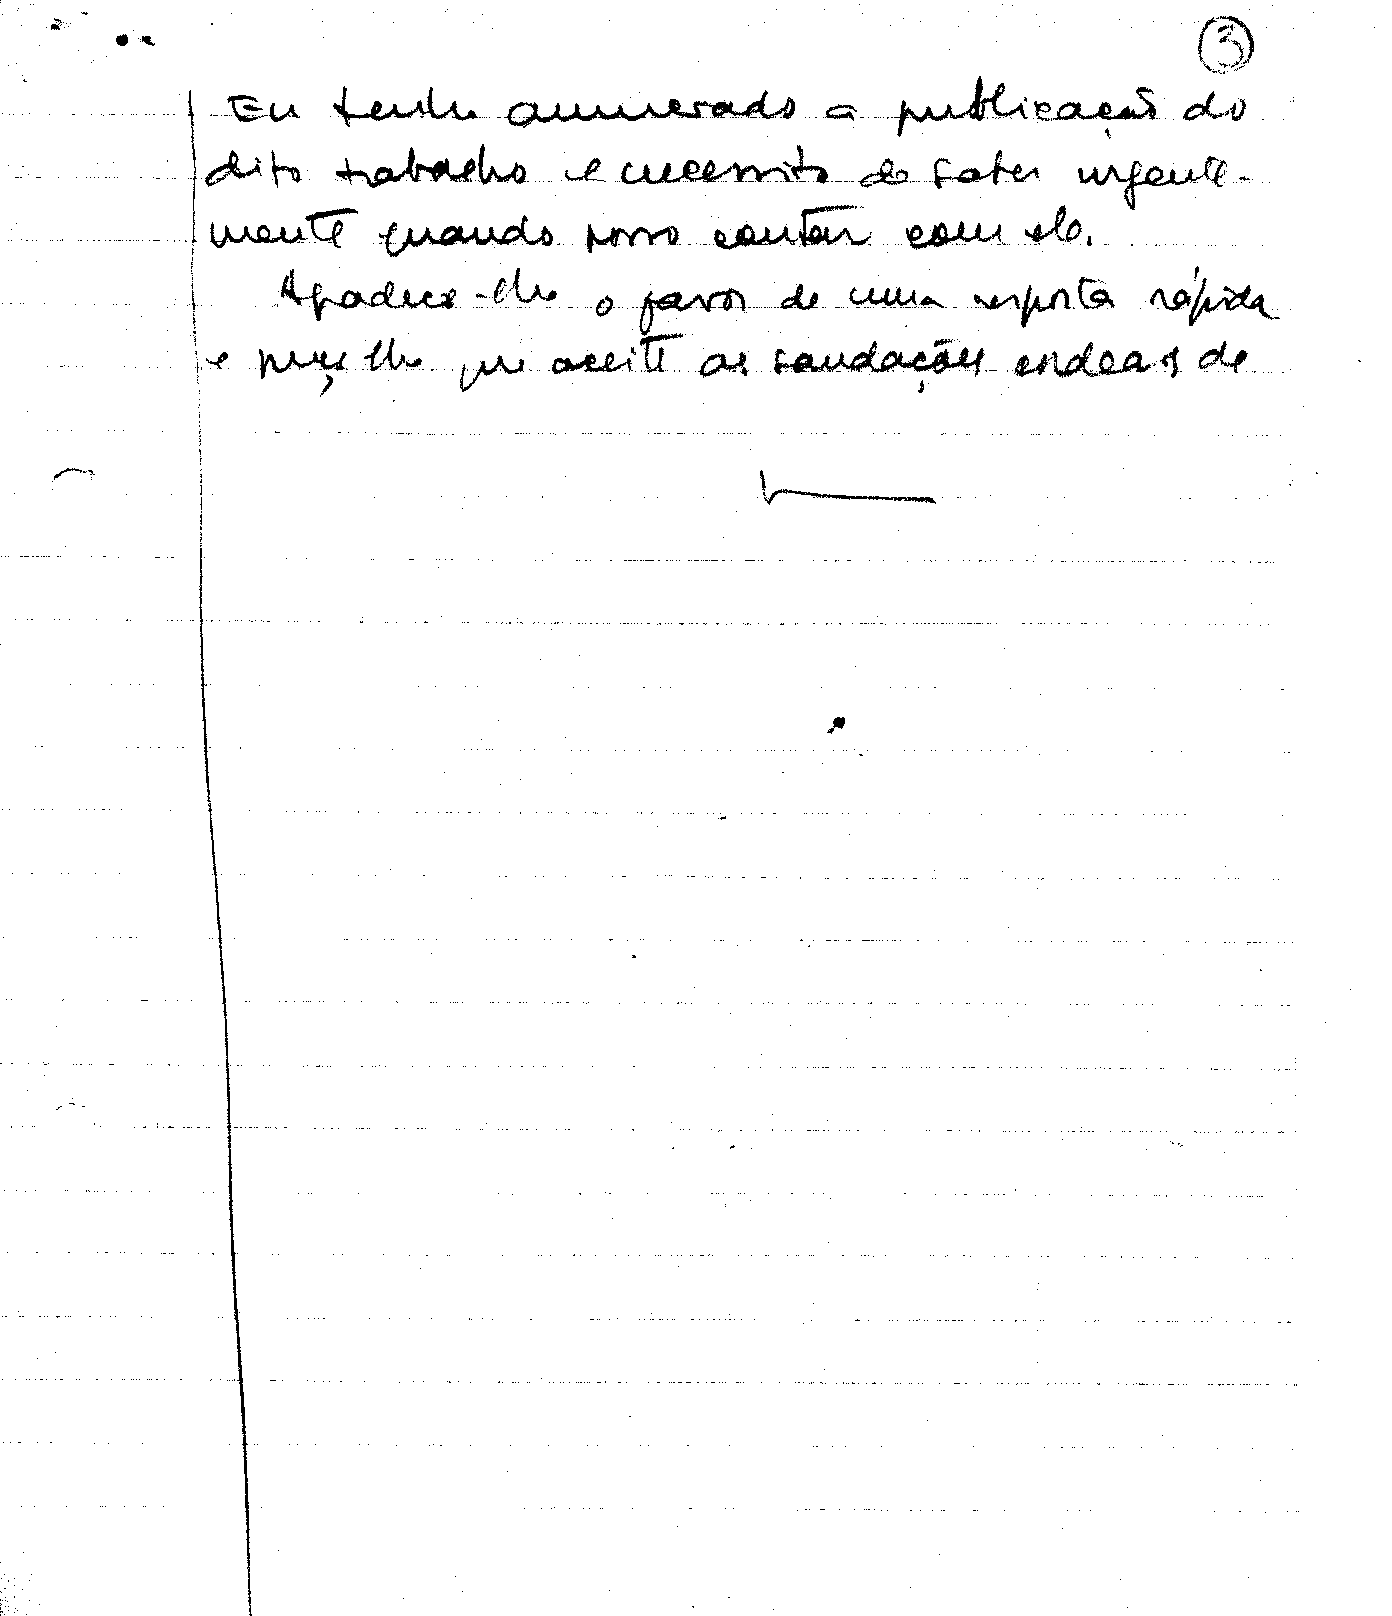 3
Eu tenho anunciado a publicação do
dito trabalho e necessito de saber urgente-
mente quando posso contar com ele.
Agradeço-lhe o favor de uma resposta rápida
e peço-lhe que aceite as saudações cordeais de